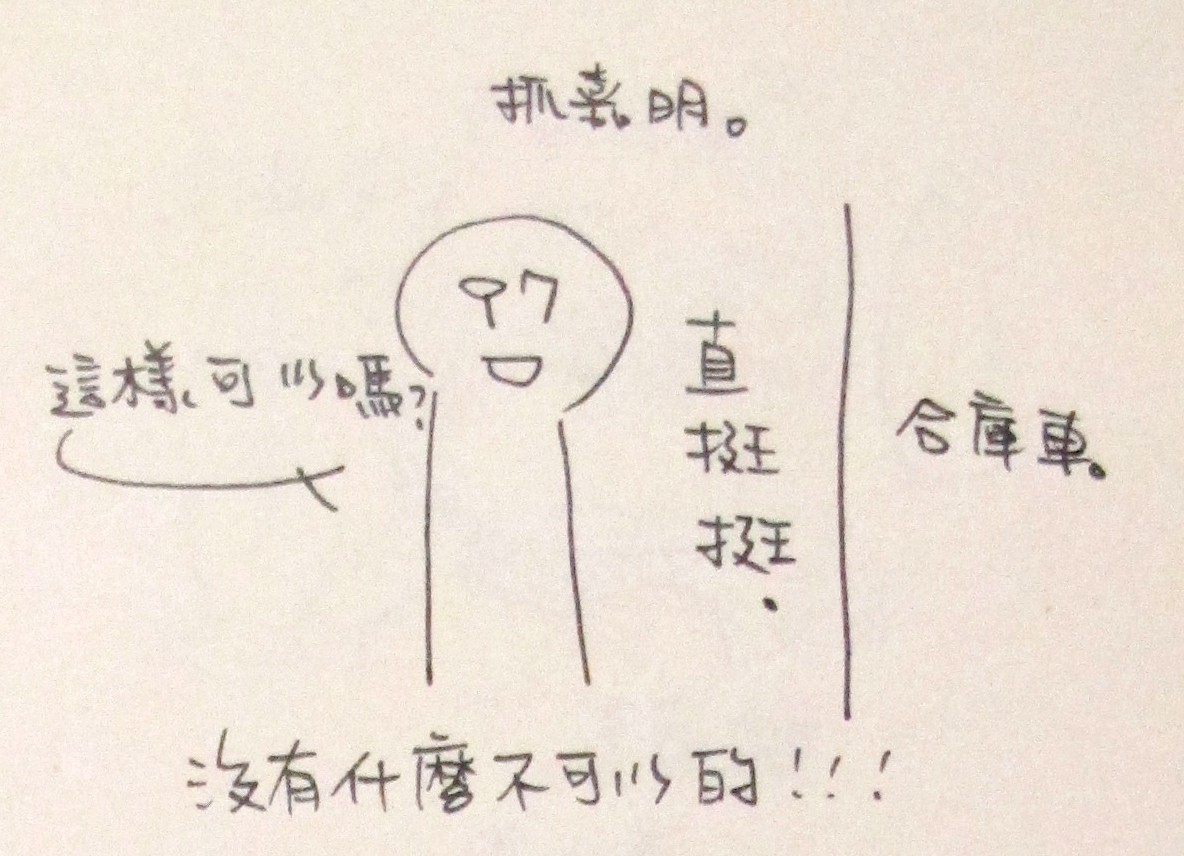 抓嘉明。
這樣可以嗎?
直挺挺.
合庫車。
沒有什麼不可以的!!!